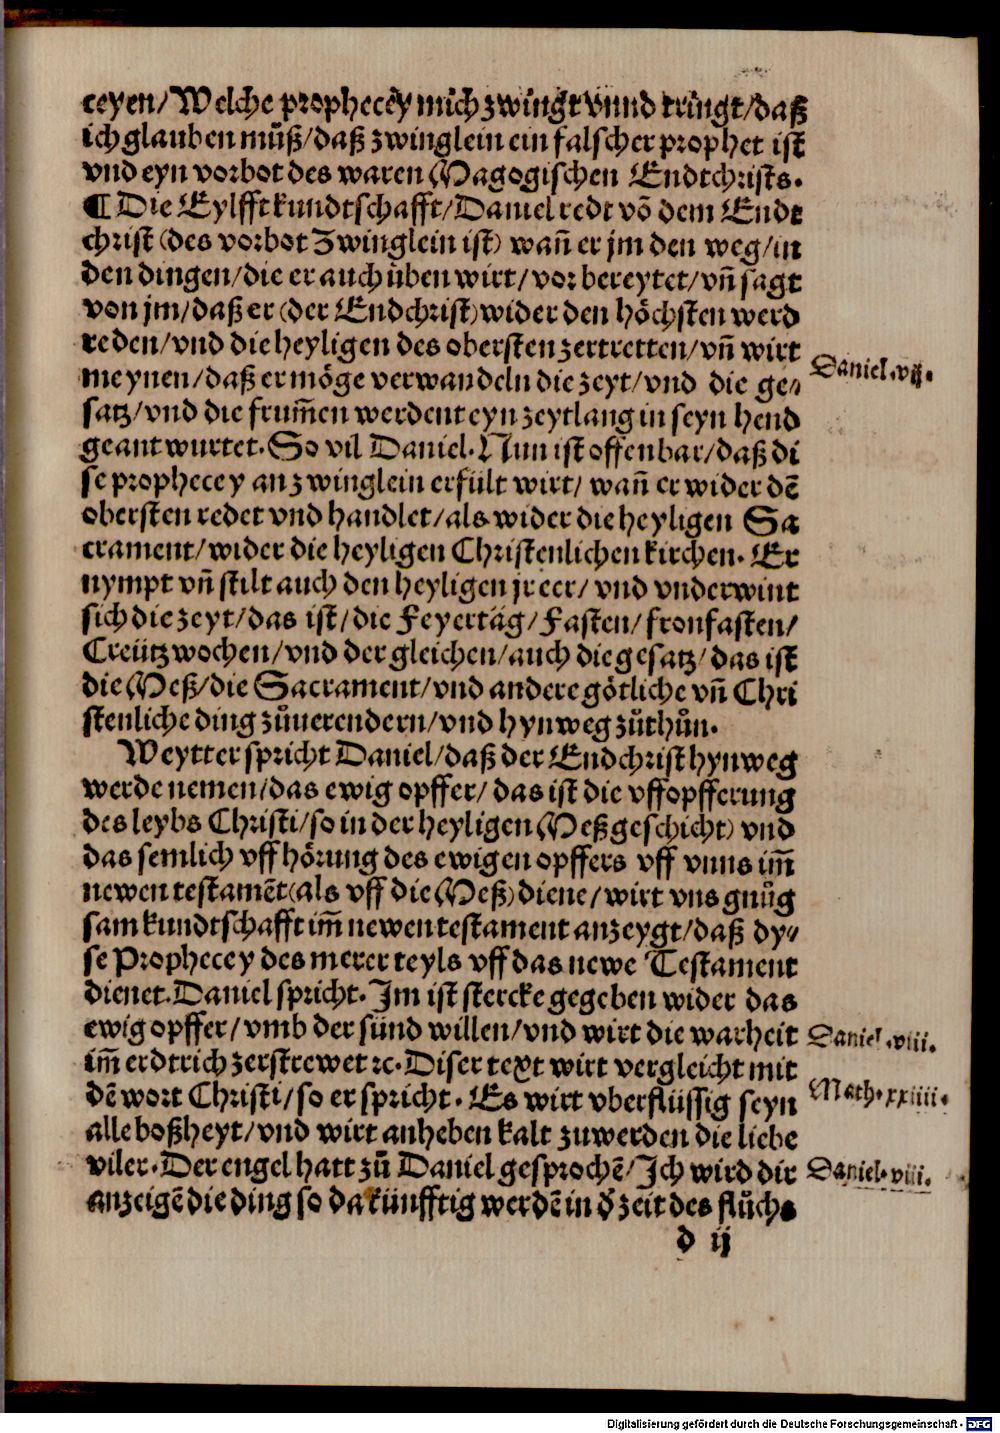 ceyen/Welche prophecey mich zwingt vnnd tringt/daß
ich glauben muͦß/daß zwinglein ein falscher prophet ist
vnd eyn vorbot des waren Magogischen Endtchrists.
¶ Die Eylfft kundtschafft/Daniel redt võ dem Endt
christ (des vorbot Zwinglein ist) wañ er jm den weg/in
den dingen/die er auch uͤben wirt/vor bereytet/vñ sagt
von jm/daß er (der Endchrist) wider den hoͤchsten werd
reden/vnd die heyligen des obersten zertretten/vñ wirt
meynen/daß er moͤge verwandeln die zeyt/vnd die ge-
Daniel.vij.
satz/vnd die frum̃en werdent eyn zeytlang in seyn hend
geantwurtet. So vil Daniel. Nun ist offenbar/daß di
se prophecey an zwinglein erfült wirt/wañ er wider dẽ
obersten redet vnd handlet/als wider die heyligen Sa
crament/wider die heyligen Christenlichen kirchen. Er
nympt vñ stilt auch den heyligen jr eer/vnd vnderwint
sich die zeyt/das ist/die Feyertäg/Fasten/fronfasten/
Creützwochen/vnd der gleichen/auch die gesatz/das ist
die Meß/die Sacrament/vnd andere goͤtliche vñ Chri
stenliche ding zuͦuerendern/vnd hynweg zuͦthuͦn.
Weytter spricht Daniel/daß der Endchrist hynweg
werde nemen/das ewig opffer/das ist die vffopfferung
des leybs Christi/so in der heyligen Meß geschicht) vnd
das semlich vffhoͤrung des ewigen opffers vff vnns im̃
newen testamẽt (als vff die Meß) diene/wirt vns gnuͦg
sam kundtschafft im̃ newen testament anzeygt/daß dy-
se Prophecey des merer teyls vff das newe Testament
dienet. Daniel spricht. Jm ist stercke gegeben wider das
ewig opffer/vmb der sünd willen/vnd wirt die warheit
Daniel.viii.
im̃ erdtrich zerstrewet ꝛc. Diser text wirt vergleicht mit
dẽ wort Christi/so er spricht. Es wirt vberflüssig seyn
Math.xxiiii.
alle boßheyt/vnd wirt anheben kalt zuwerden die liebe
viler. Der engel hatt zuͦ Daniel gesprochẽ/Jch wird dir
Daniel.viii.
anzeigẽ die ding so da künfftig werdẽ in d̕ zeit des fluͦchs
d ij
Digitalisierung gefördert durch die Deutsche Forschungsgemeinschaft - DFG